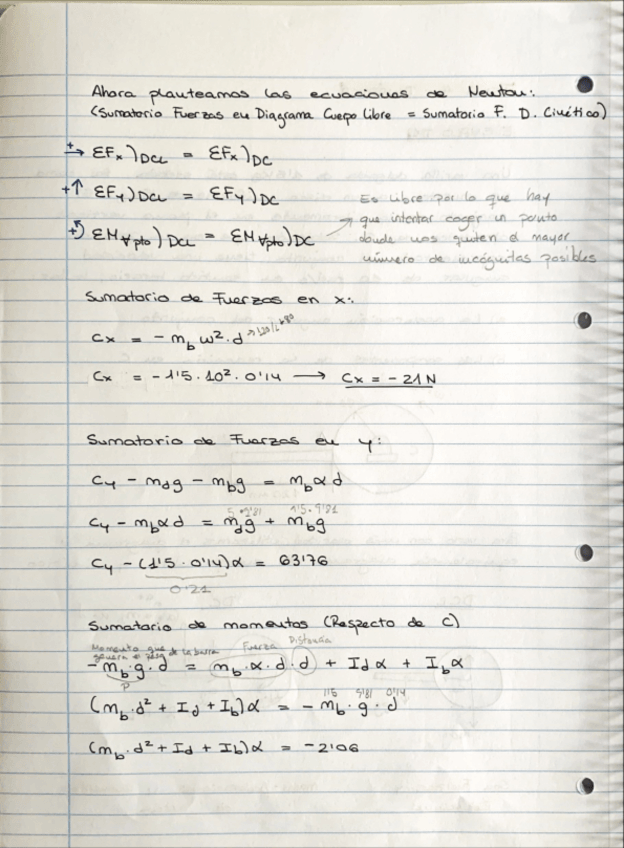 Ahora planteamos las ecuaciones de Newton:
(Sumatorio Fuerzas en Diagrama Cuerpo Libre = Sumatorio F. D. Cinético)
+→ ΣFx)DCL = ΣFx)DC
+↑ ΣFy)DCL = ΣFy)DC
+↺ ΣM∀pto)DCL = ΣM∀pto)DC
Es libre por lo que hay
que intentar coger un punto
donde nos quiten el mayor
número de incógnitas posibles
Sumatorio de Fuerzas en x:
Cx = - mb ω²·d
Cx = -1'5·10²·0'14 → Cx = -21N
Sumatorio de Fuerzas en y:
Cy - mdg - mbg = mbαd
5·9'81 1'5·9'81
Cy - mbαd = mdg + mbg
Cy - (1'5·0'14)α = 63'76
0'21
Sumatorio de momentos (Respecto de C)
Momento que genera el peso de la barra
Fuerza Distancia
-mb·g·d = mb·α·d·d + Idα + Ibα
P
1'5 9'81 0'14
(mb·d² + Id + Ib)α = -mb·g·d
(mb·d² + Id + Ib)α = -2'06